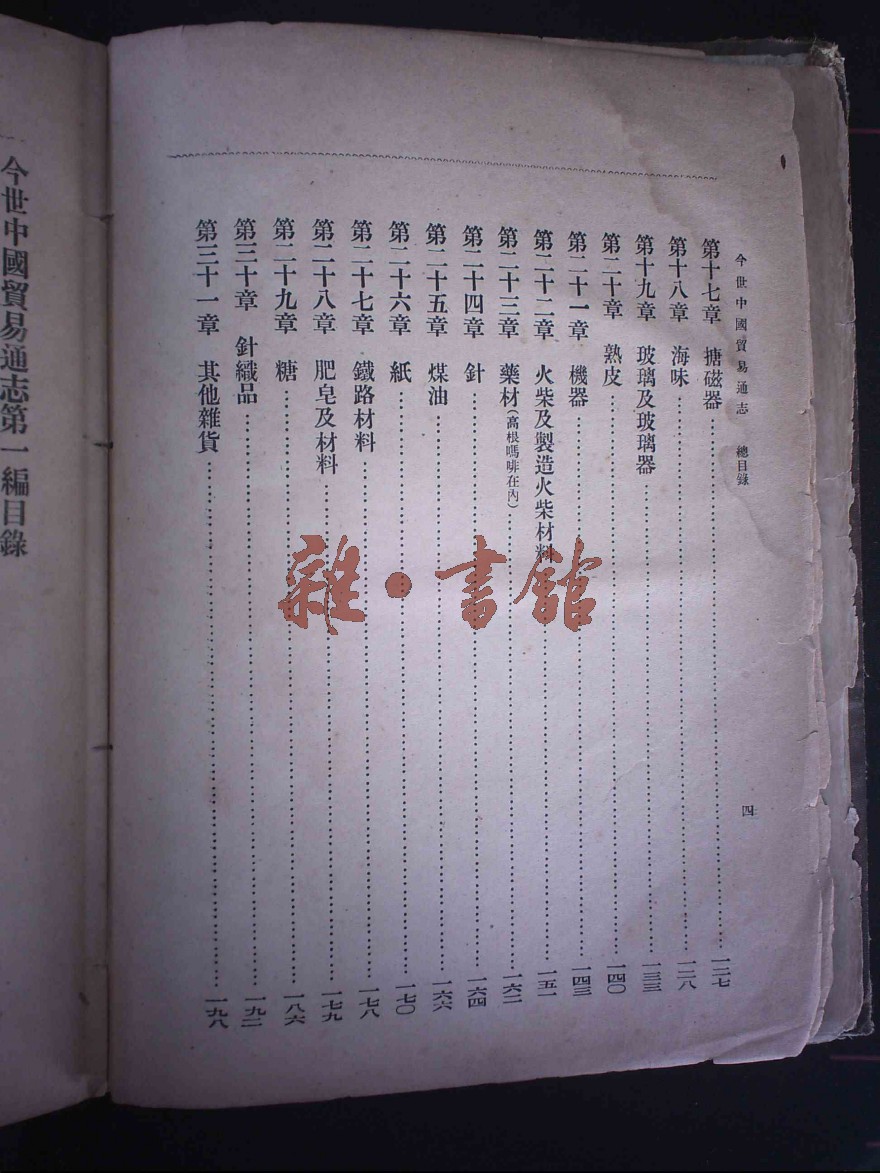 今世中國貿易通志 總目錄
四
第十七章 搪磁器 一二七
第十八章 海味 一二八
第十九章 玻璃及玻璃器 一三三
第二十章 熟皮 一四〇
第二十一章 機器 一四三
第二十二章 火柴及製造火柴材料 一五一
第二十三章 藥材(高根嗎啡在內) 一六二
第二十四章 針 一六四
第二十五章 煤油 一六六
第二十六章 紙 一七〇
第二十七章 鐵路材料 一七八
第二十八章 肥皂及材料 一七九
第二十九章 糖 一八六
第三十章 針織品 一九二
第三十一章 其他雜貨 一九八
今世中國貿易通志第一編目錄
雜·書館